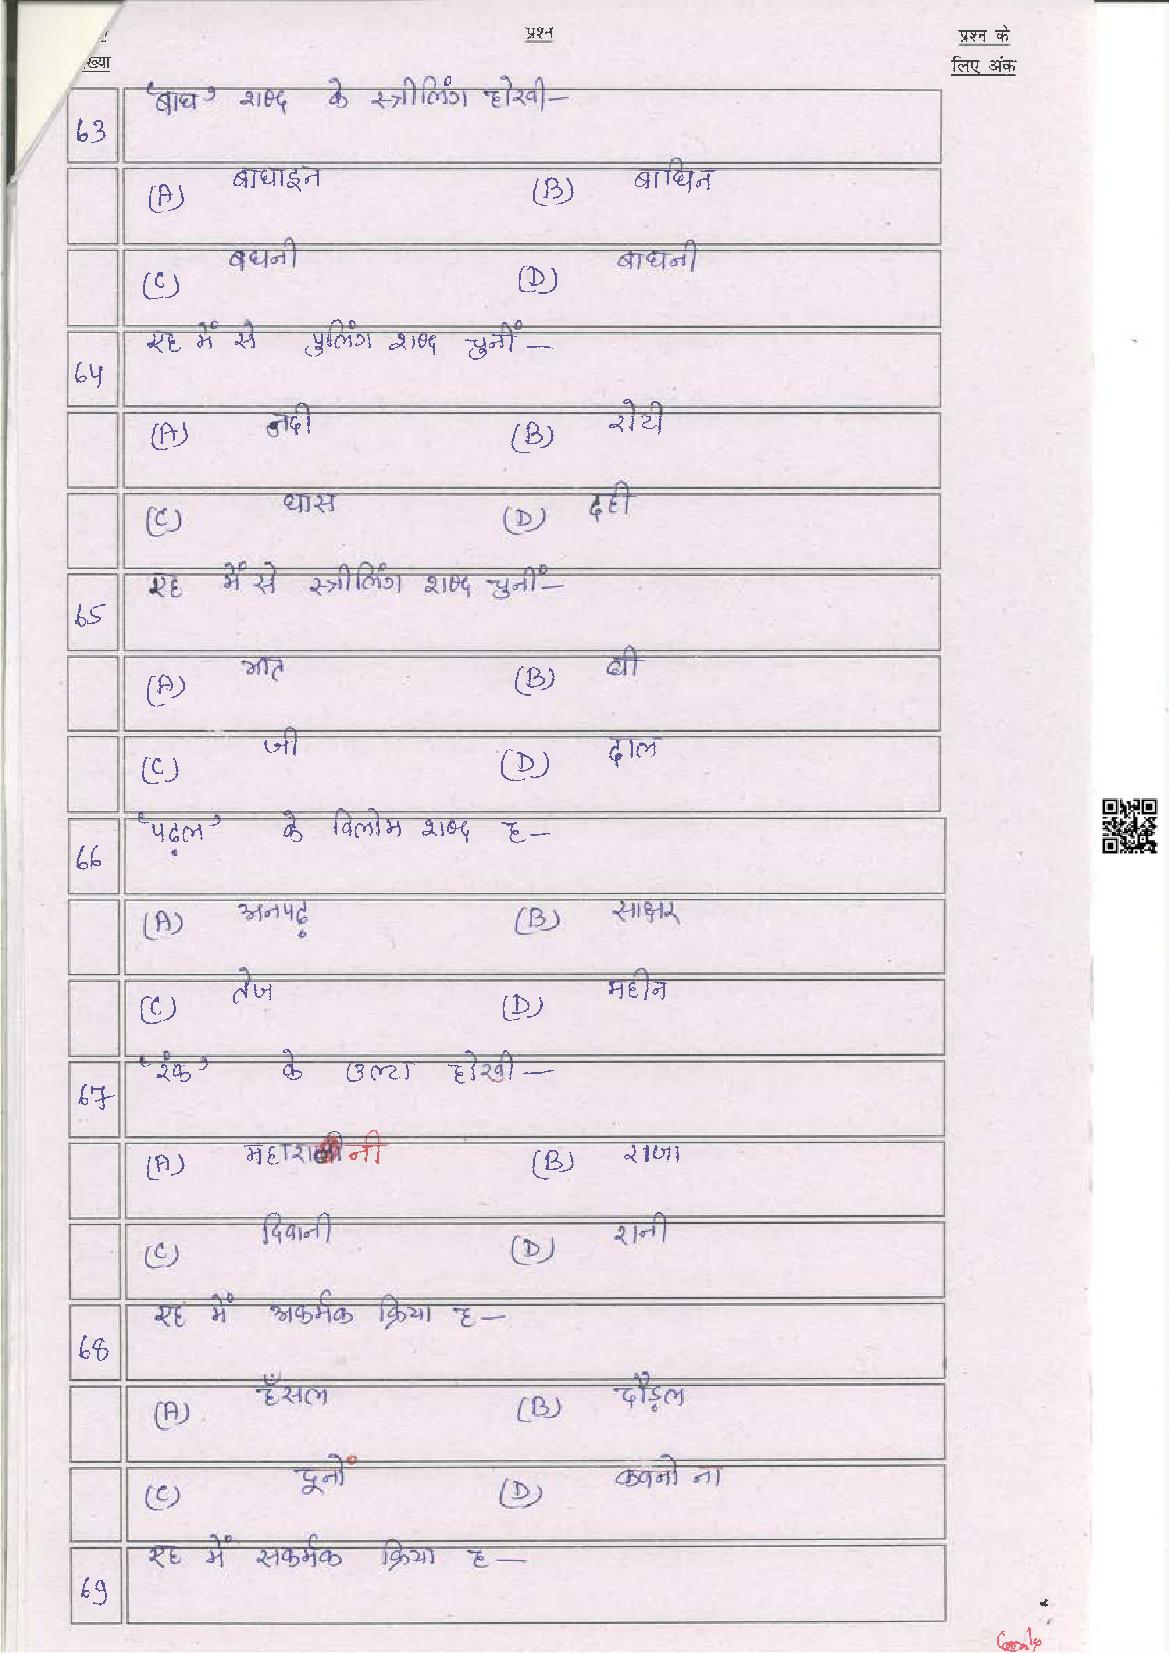 प्रश्न
प्रश्न के
ख्या
लिए अंक
63 'बाघ' शब्द के स्त्रीलिंग होखी—
(A) बाघाइन (B) बाघिन
(C) बघनी (D) बाघनी
64 एह में से पुलिंग शब्द चुनीं—
(A) नदी (B) रोटी
(C) घास (D) दही
65 एह में से स्त्रीलिंग शब्द चुनीं—
(A) भात (B) घी
(C) जी (D) दाल
66 'पढ़ल' के विलोम शब्द ह—
(A) अनपढ़ (B) साक्षर
(C) तेज (D) महीन
67 'रंक' के उल्टा होखी—
(A) महारानी (B) राजा
(C) दिवानी (D) रानी
68 एह में अकर्मक क्रिया ह—
(A) हँसल (B) दौड़ल
(C) दूनों (D) कवनो ना
69 एह में सकर्मक क्रिया ह—